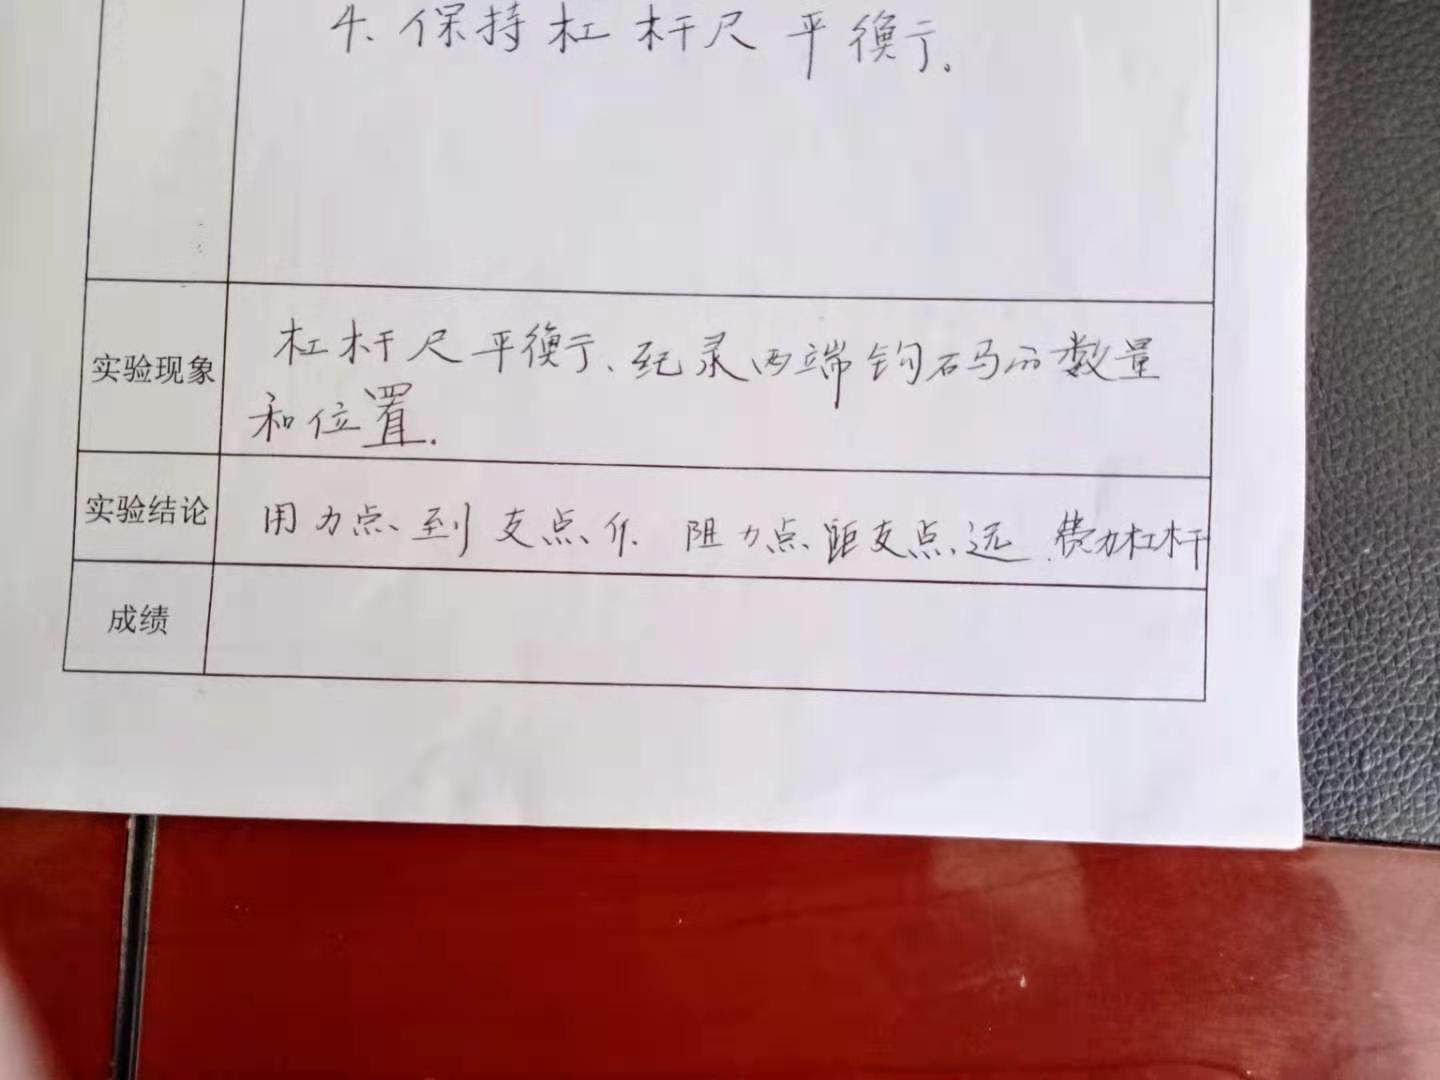 4、保持杠杆尺平衡。
实验现象
杠杆尺平衡、纪录两端钩码的数量
和位置.
实验结论
用力点到支点 阻力点距支点远.费力杠杆
成绩